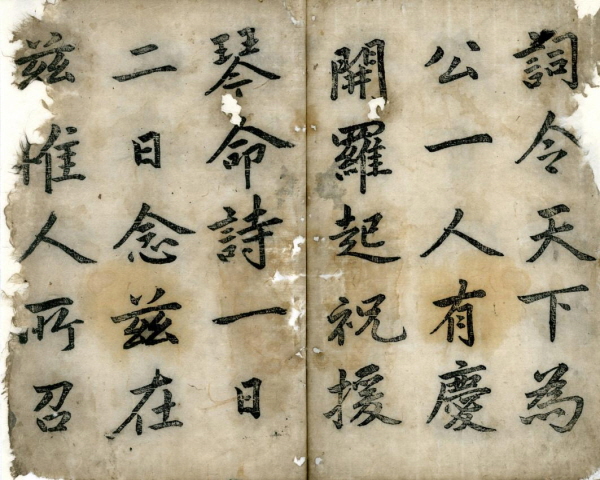 詞令天下為
公一人有慶
開羅起祝援
琴命詩一日
二日念茲在
茲惟人所召